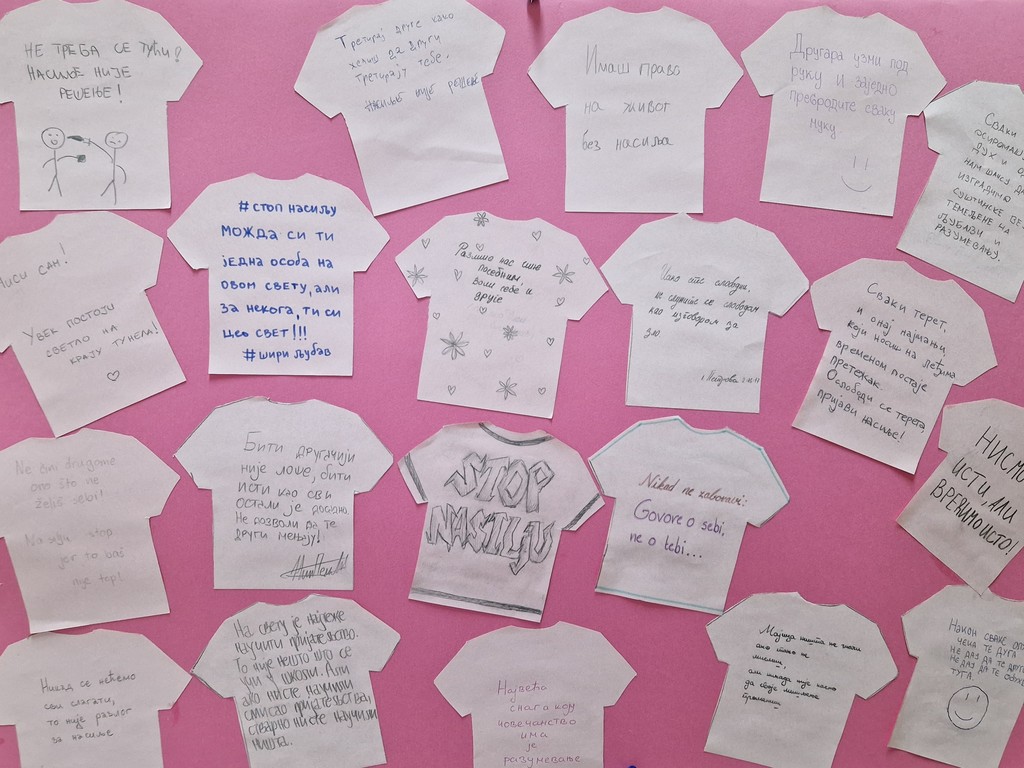 НЕ ТРЕБА СЕ ТУЋИ!
НАСИЉЕ НИЈЕ
РЕШЕЊЕ!
Третирај друге како
желиш да други
третирају тебе.
Насиље није решење
Имаш право
на живот
без насиља
Другара узми под
руку и заједно
пребродите сваку
муку.
Сваки
ДУХ И
НАМ ШАНСУ ДА
ИЗГРАДИМО
СУШТИНСКЕ ВЕ
ТЕМЕЉЕНЕ НА
ЉУБАВИ И
РАЗУМЕВАЊУ.
НИСИ САМ!
УВЕК ПОСТОЈИ
СВЕТЛО НА
КРАЈУ ТУНЕЛА!
#СТОП НАСИЉУ
МОЖДА СИ ТИ
ЈЕДНА ОСОБА НА
ОВОМ СВЕТУ, АЛИ
ЗА НЕКОГА, ТИ СИ
ЦЕО СВЕТ!!!
#ШИРИ ЉУБАВ
нас чини
посебним
воли себе и
друге
слободни,
не служите се слободом
као изговором за
зло.
Сваки терет,
и онај најмањи,
који носиш на леђима
временом постаје
претежак.
Ослободи се терета,
пријави насиље!
Ne čini drugome
ono što ne
želiš sebi!
stop
jer to baš
nije top!
Бити другачији
није лоше, бити
исти као сви
остали је
Не дозволи да те
други мењају!
STOP
NASILJU
Nikad ne zaboravi:
Govore o sebi,
ne o tebi...
НИСМО
ИСТИ АЛИ
ВРЕДИМО ИСТО!
Никад се нећемо
сви слагати,
то није разлог
за насиље
На свету је најтеже
научити пријатељство.
То није нешто што се
учи у школи. Али
ако нисте научили
смисао пријатељства,
стварно нисте научили
ништа.
Највећа
снага коју
човечанство
има
је
разумевање
Мајица ништа не значи
ако тако не
мислиш,
НАКОН СВАКЕ
ТЕ ДУГА
НЕ ДАЈ ДА ТЕ
НЕ ДАЈ ДА ТЕ
ТУГА.